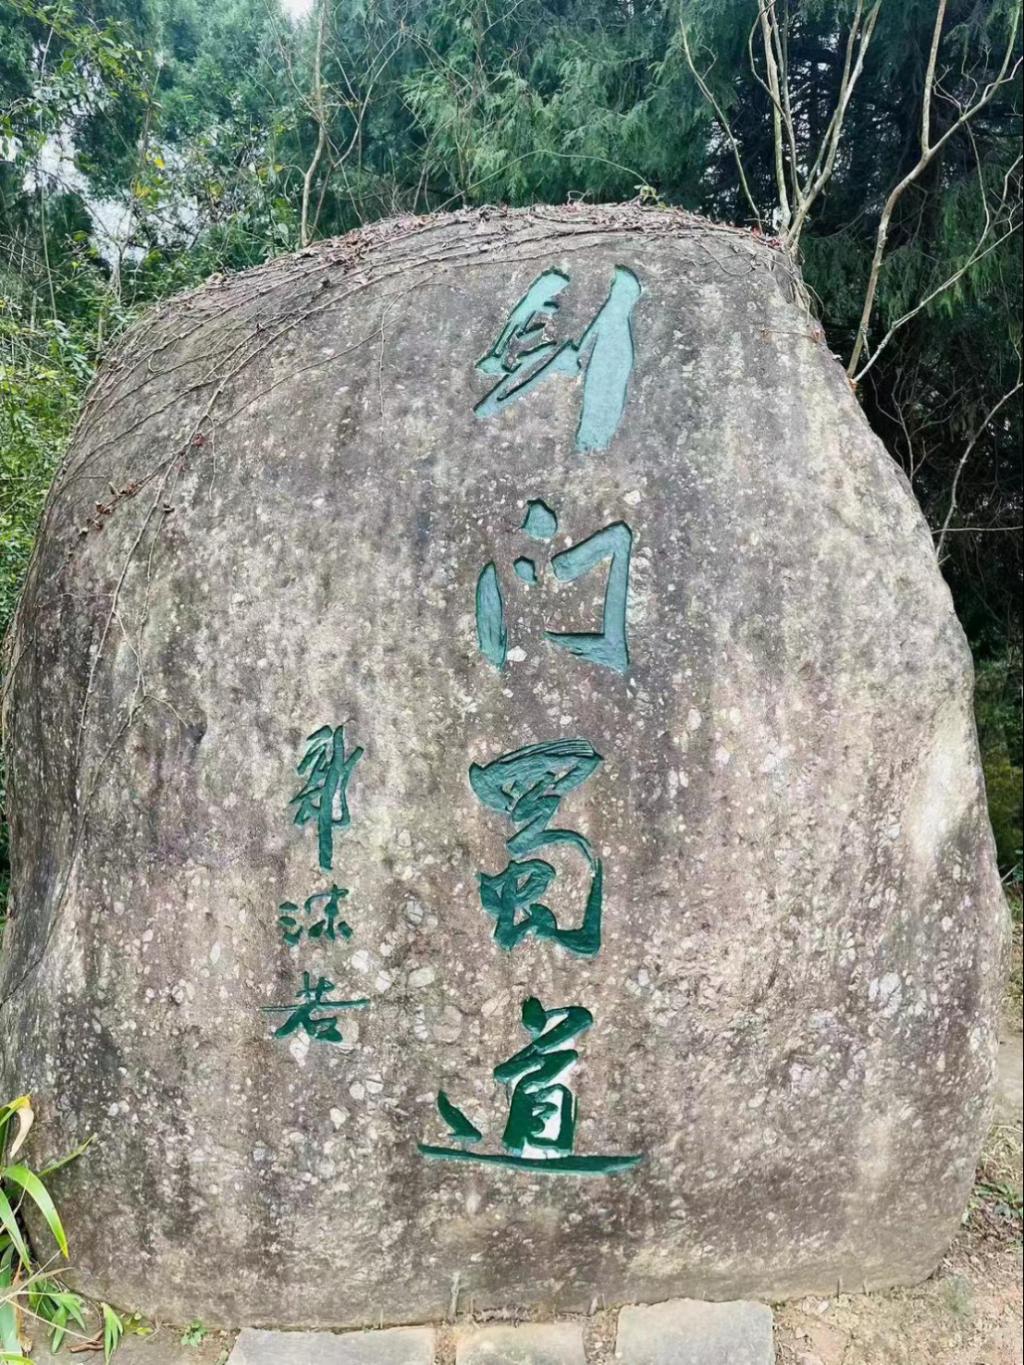 剑门蜀道
郭沫若